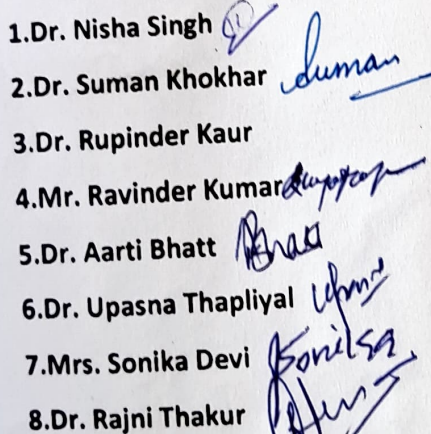 1.Dr. Nisha Singh
2.Dr. Suman Khokhar Suman
3.Dr. Rupinder Kaur
4.Mr. Ravinder Kumar
5.Dr. Aarti Bhatt
6.Dr. Upasna Thapliyal
7.Mrs. Sonika Devi
8.Dr. Rajni Thakur